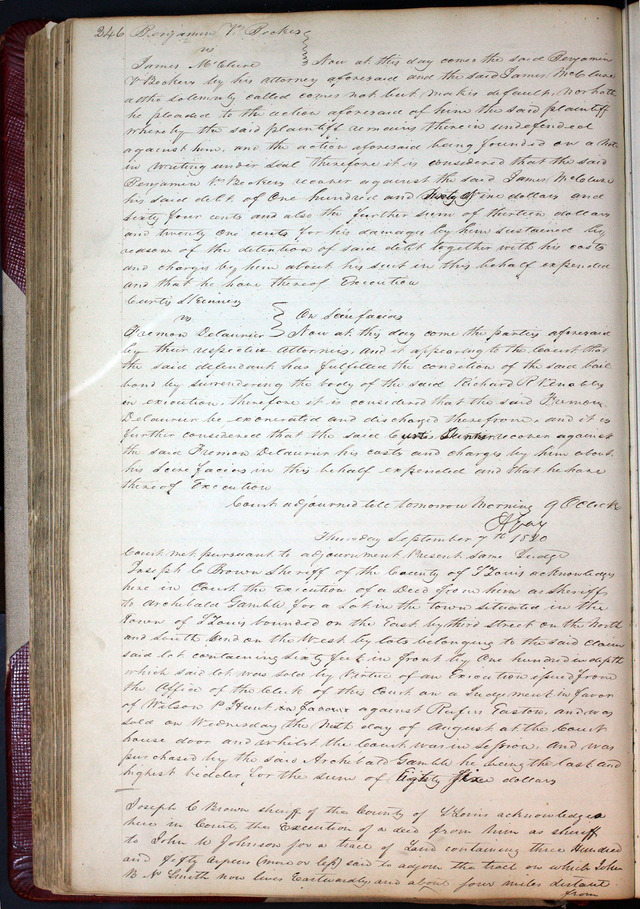 246 Benjamin V. Beekes
vs
James McClure } Now at this day comes the said Benjamin
V Beekers by his attorney aforesaid and the said James McClure
altho solemnly called comes not but makes default, Nor hath
he pleased to the action aforesaid of him the said plaintiff
whereby the said plaintiff remains therein undefended
against him, and the action aforesaid being founded on a
in writing under seal therefore it is considered that the said
Benjamin V. Beekers recover against the said James McClure
his said debt of One hundred and Sixty Nine dollars and
Sixty four cents and also the further sum of thirteen dollars
and twenty One cents for his damages by him sustained by
reason of the detention of said debt together with his costs
and charges by him about his suit in this behalf expended
and that he have thereof Execution
Curtis Skinner
vs } On Scire facias
Fremon Delaurier } Now at this day come the parties aforesaid
by their respective Attornies, and it appearing to the Court that
the said defendant has fulfilled the condition of the said bail
bond by surrendering the body of the said Richard R Venables
in execution, therefore it is considered that the said Fremon
Delaurier be exonerated and discharged therefrom, and it is
further considered that the said Curtis Skinner recover against
the said Fremon Delaurier his costs and charges by him about
his Scire facias in this behalf expended and that he have
thereof Execution
Court adjourned till tomorrow Morning 9 OClock
A Gray
Thursday September 7th 1820
Court met pursuant to adjournment Present same Judge
Joseph C Brown Sheriff of the County of S Louis acknowledges
here in Court the Execution of a Deed from him as Sheriff
to Archibald Gamble for a Lot in the town situated in the
Town of S Louis bounded on the East by third Street on the North
and South and on the West by lots belonging to the said claim
said lot containing Sixty feet in front by One hundred in depth
which said lot was sold by Virtue of an Execution issued from
the Office of the Clerk of this Court on a Judgement in favor
of Wilson P Hunt on favour against Rufus Easton, and was
sold on Wednesday the Ninth day of August at the Court
house door and whilst the Court was in Session. And was
purchased by the said Archibald Gamble he being the last and
highest bidder for the sum of Eighty five dollars
Joseph C Brown sheriff of the County of S Louis acknowledges
here in Court, the Execution of a deed from him as sheriff
to John W Johnson for a tract of Land containing three Hundred
and fifty arpens (more or less) said to adjoin the tract on which John
B N Smith now lives Eastwardly, and about four miles distant
from